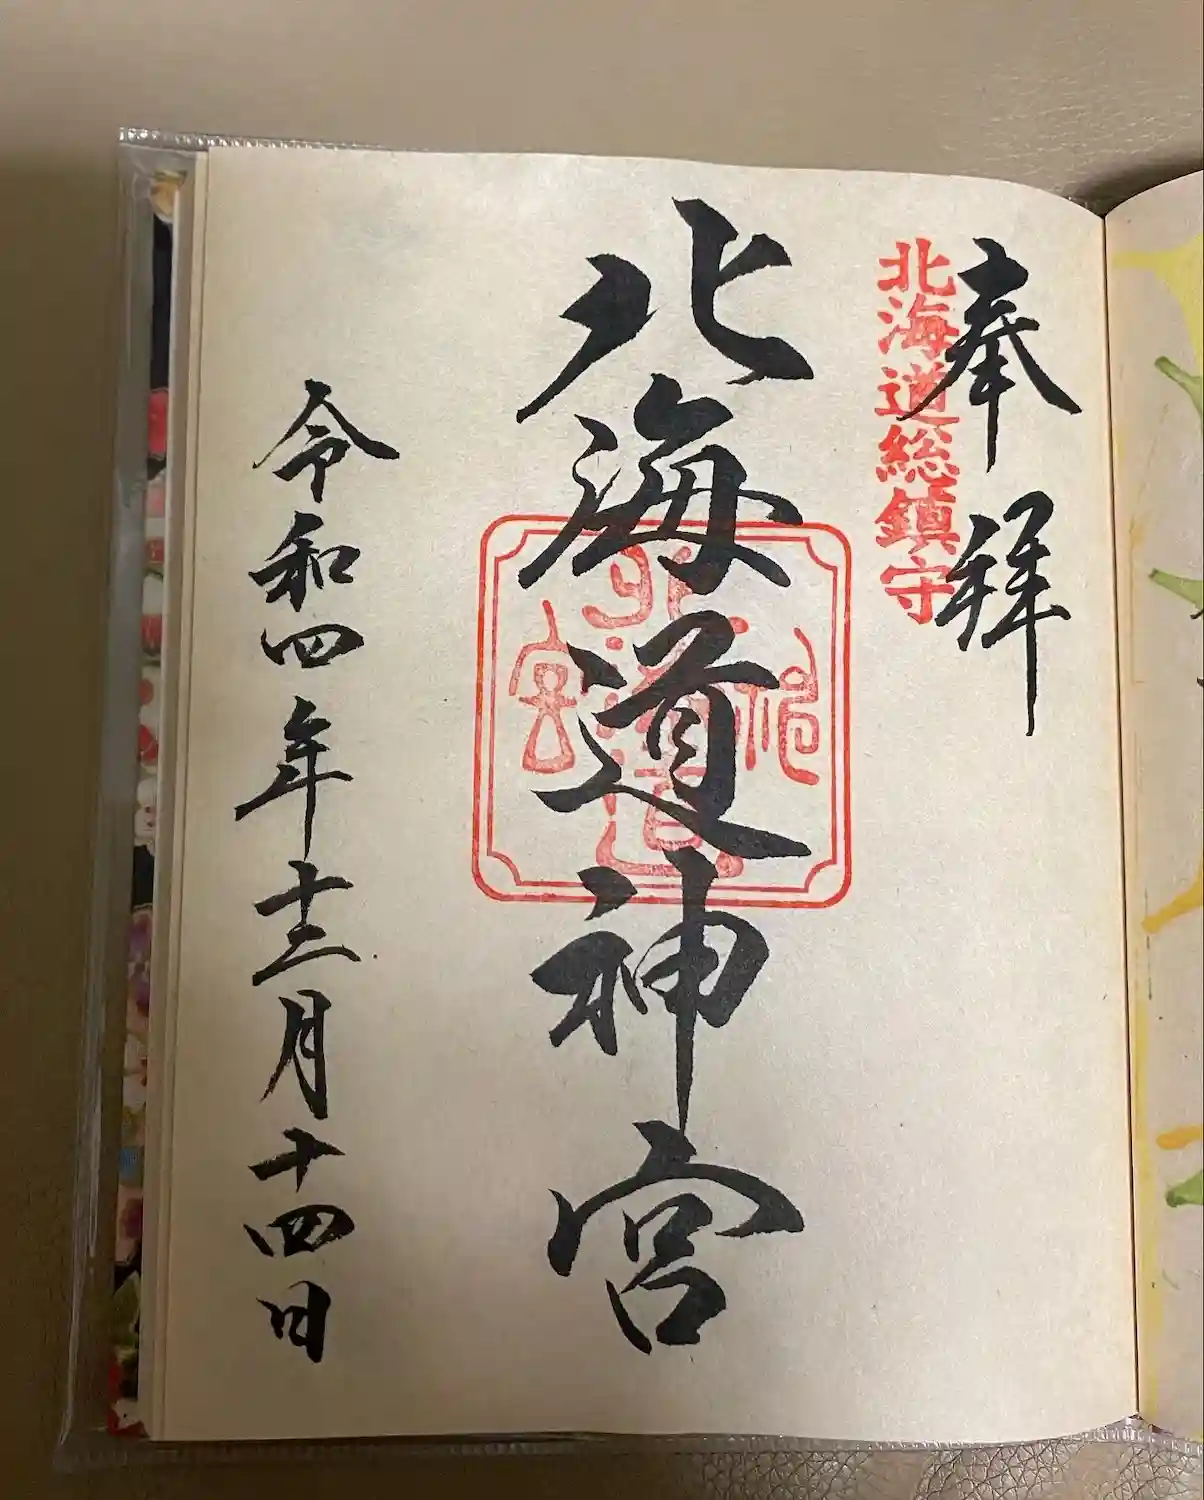 奉拝
北海道総鎮守
北海道神宮
北海道神宮
令和四年十二月十四日